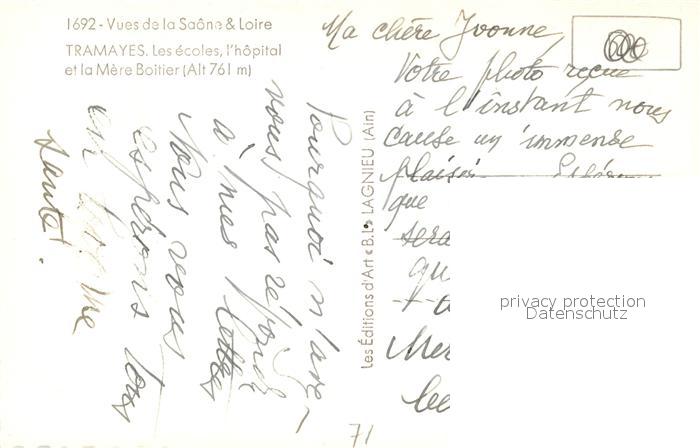 1692 - Vues de la Saône & Loire
TRAMAYES. Les écoles, l'hôpital
et la Mère Boitier (Alt 761 m)
Ma chère Yvonne,
Votre photo reçue
à l'instant nous
cause un immense
plaisir
que
sera
qu
Mer
Les Éditions d'Art « B.L » LAGNIEU (Ain)
Pourquoi n'avez-
vous pas répondu
à mes lettres
Nous vous
espérons tous
en bonne
santé !
71
privacy protection
Datenschutz